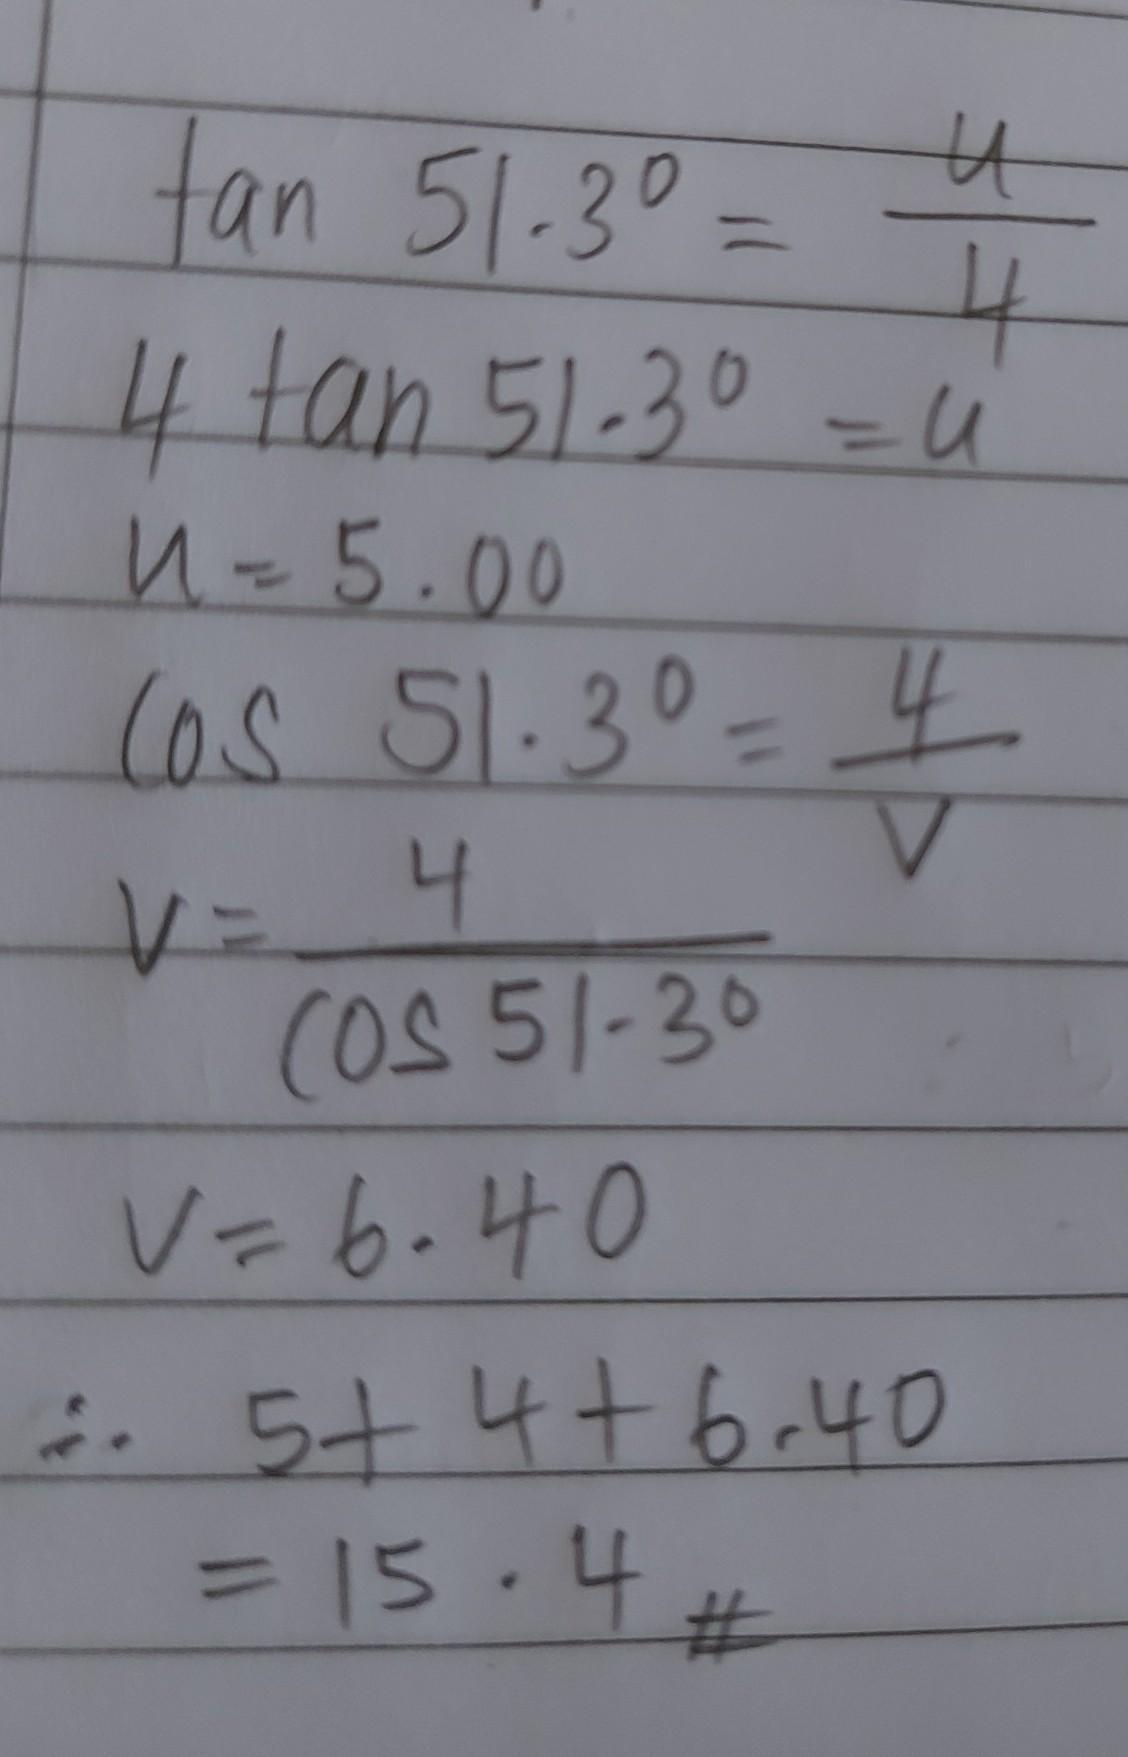 tan 51.3° = u/4
4 tan 51.3° = u
u = 5.00
cos 51.3° = 4/v
v = 4/cos 51.3°
v = 6.40
∴ 5 + 4 + 6.40
= 15.4 #